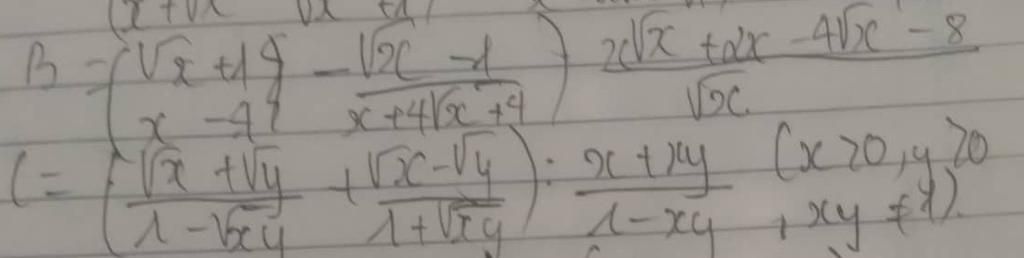 B = (√x + 1 / x - 4 - √x - 1 / x + 4√x + 4) x√x + 2x - 4√x - 8 / √x
C = (√x + √y / 1 - √xy + √x - √y / 1 + √xy) : x + xy / 1 - xy (x > 0, y > 0, xy ≠ 1).